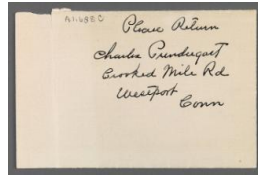 A1.68E
Please Return
Charles Prendergast
Crooked Mile Rd
Westport
Conn